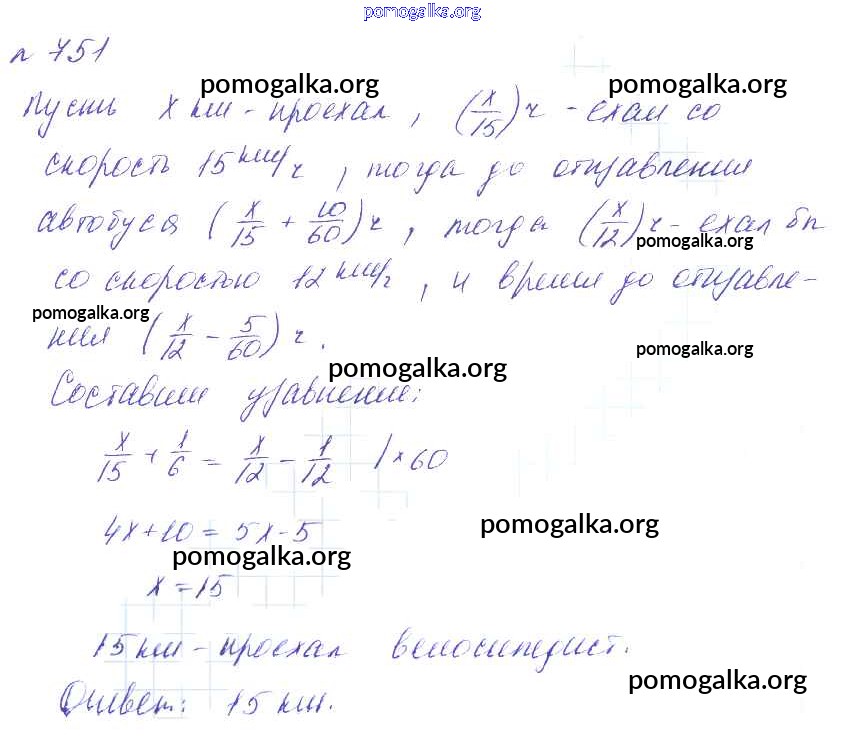 pomogalka.org
n 751
pomogalka.org pomogalka.org
Пусть x км - проехал, (x/15) ч - ехал со
скорость 15 км/ч, тогда до отправления
автобуса (x/15 + 10/60) ч, тогда (x/12) ч - ехал бы
pomogalka.org
со скоростью 12 км/ч, и время до отправле-
pomogalka.org
ния (x/12 - 5/60) ч.
pomogalka.org
pomogalka.org
Составим уравнение:
x/15 + 1/6 = x/12 - 1/12 | × 60
4x+10 = 5x-5
pomogalka.org
pomogalka.org
x = 15
15 км - проехал велосипедист.
pomogalka.org
Ответ: 15 км.